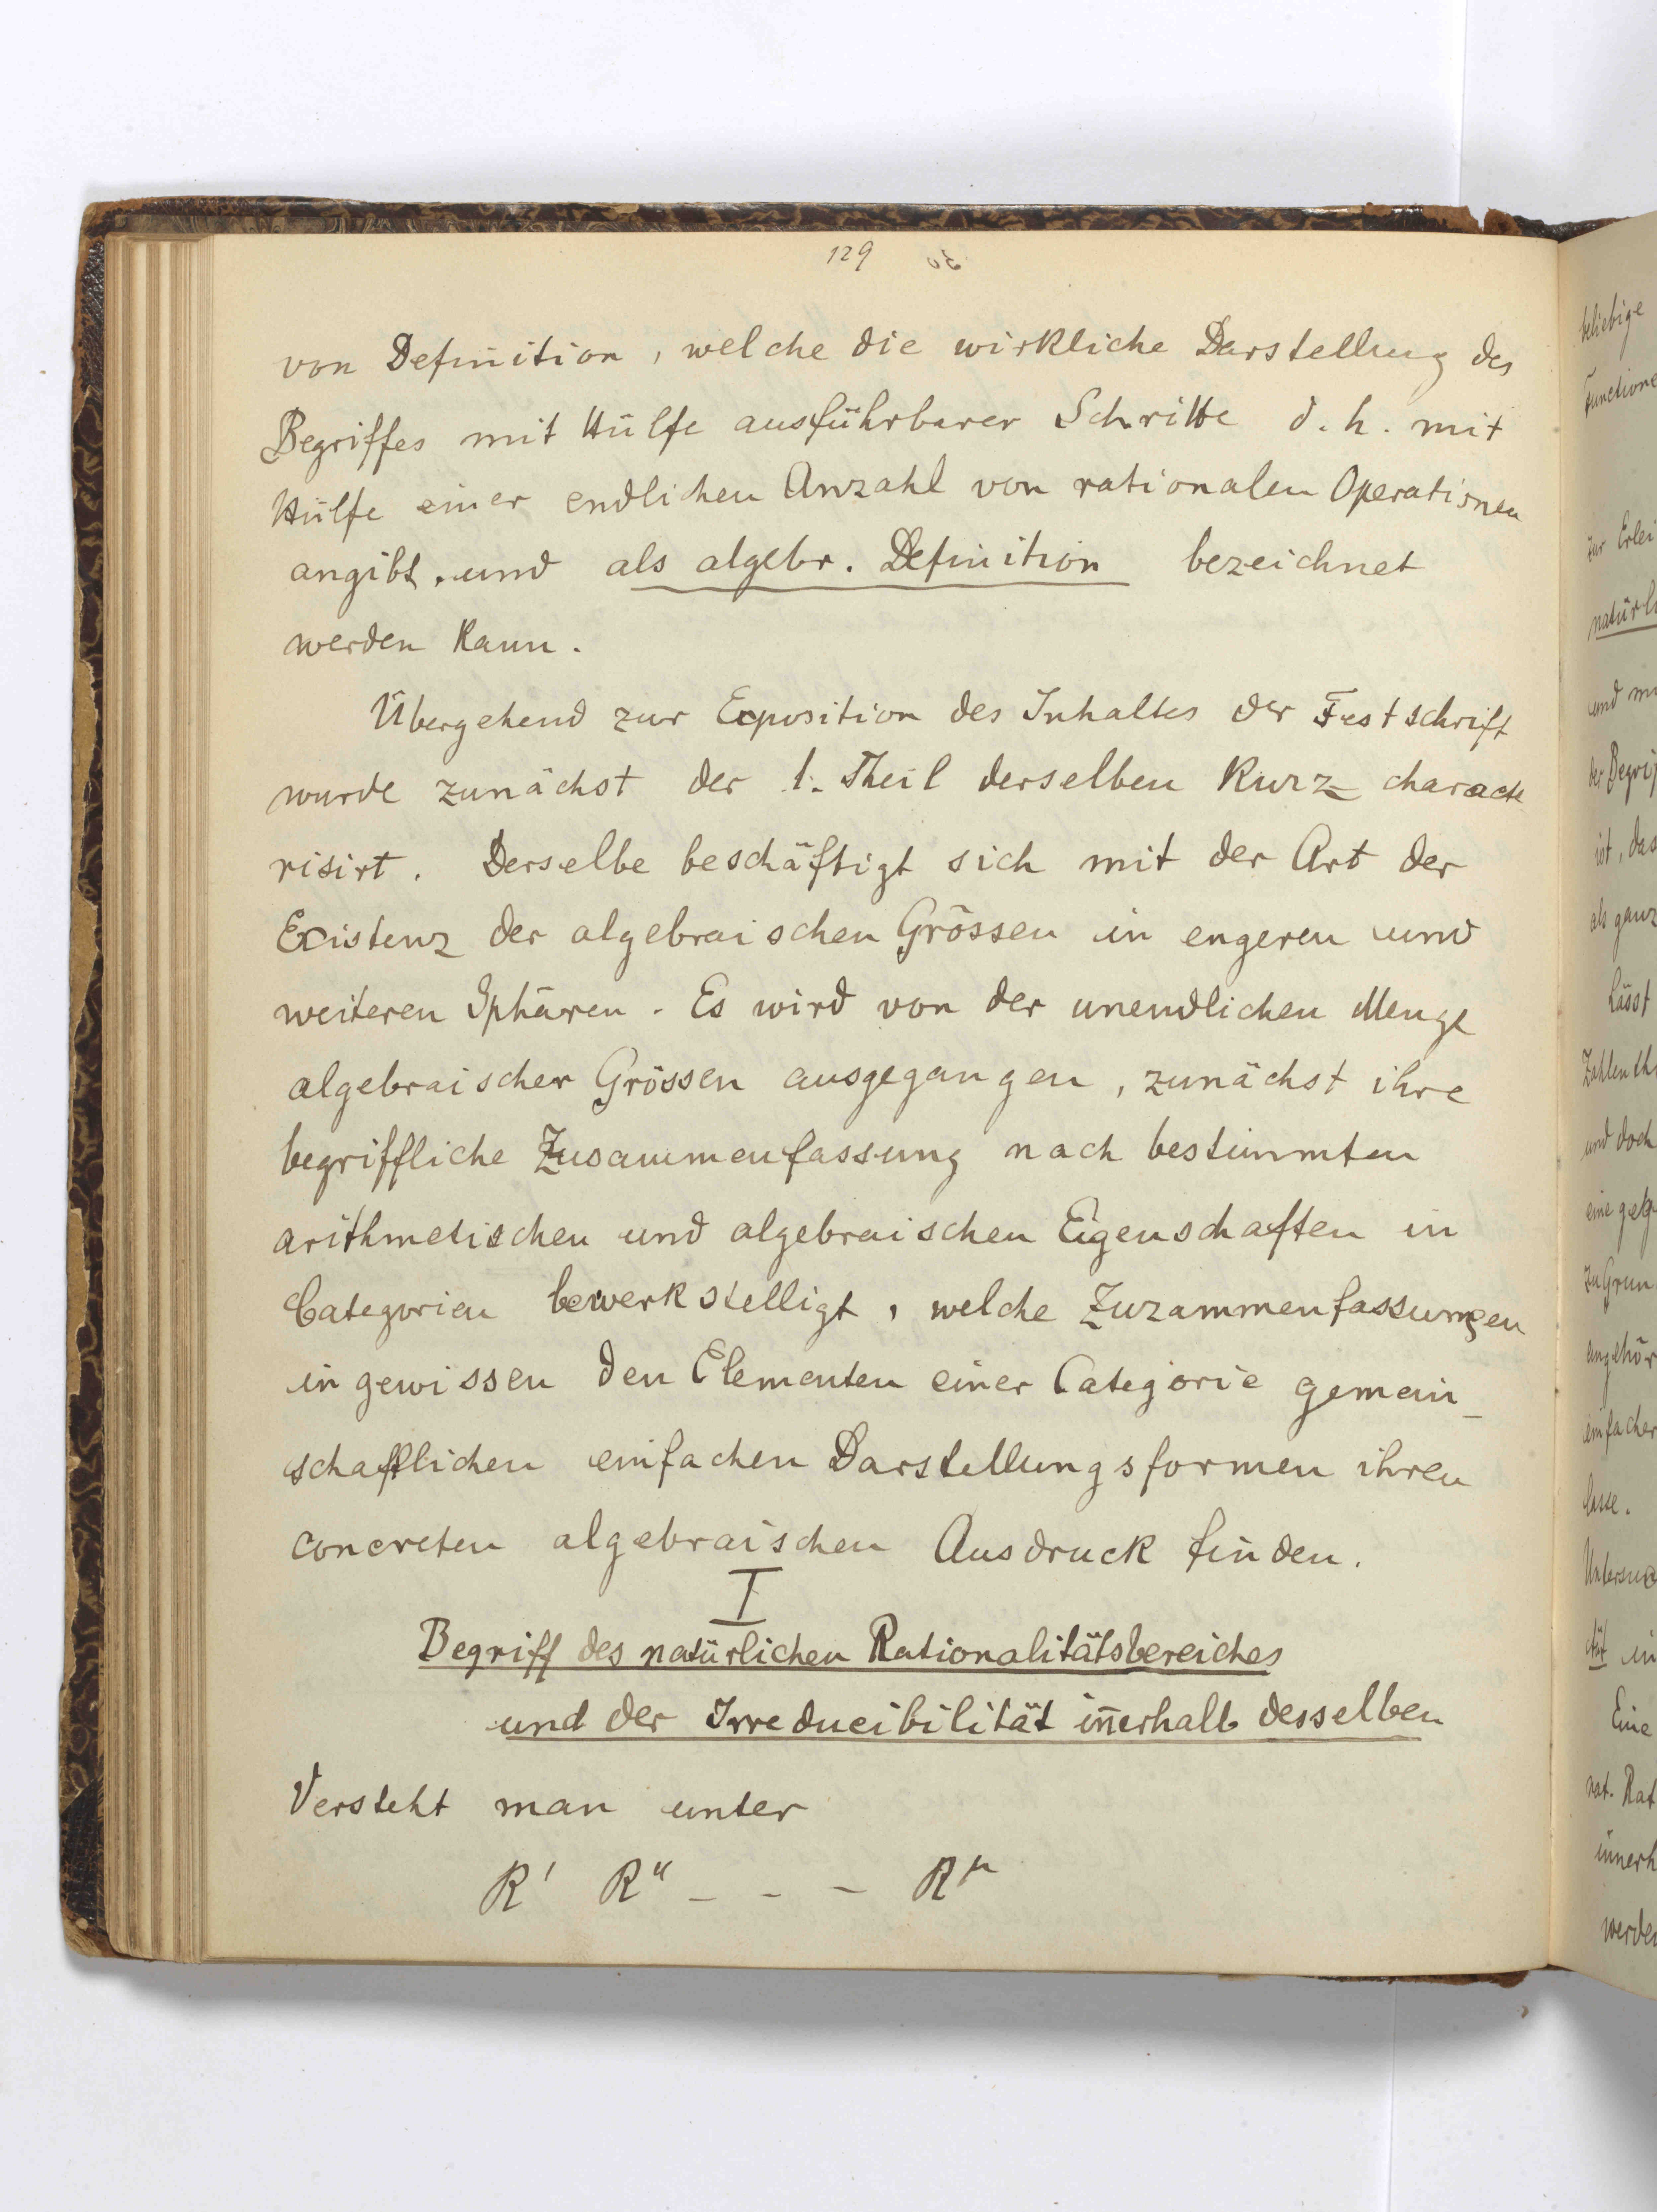 129 30
von Definition, welche die wirkliche Darstellung des
Begriffes mit Hülfe ausführbarer Schritte d.h. mit
Hülfe einer endlichen Anzahl von rationalen Operationen
angibt, und als algebr. Definition bezeichnet
werden kann.
Übergehend zur Exposition des Inhaltes der Festschrift
wurde zunächst der 1. Theil derselben kurz characte
risirt. Derselbe beschäftigt sich mit der Art der
Existenz der algebraischen Grössen in engeren und
weiteren Sphären. Es wird von der unendlichen Menge
algebraischer Grössen ausgegangen, zunächst ihre
begriffliche Zusammenfassung nach bestimmten
arithmetischen und algebraischen Eigenschaften in
Categorien bewerkstelligt, welche Zuzammenfassungen
in gewissen den Elementen einer Categorie gemein_
schaftlichen einfachen Darstellungsformen ihren
concreten algebraischen Ausdruck finden.
I
Begriff des natürlichen Rationalitätsbereiches
und der Irreducibilität in̅erhalb desselben
Versteht man unter
R' R" _ _ _ R^μ
beliebige
Functione
zur Erlei
natürli
und
der Begrif
ist, das
als ganz
Lässt
Zahlenth
und doch
eine
zu Grun
angehör
einfacher
lasse.
Untersuc
ität in
Eine
nat. Rat
innerh
werde